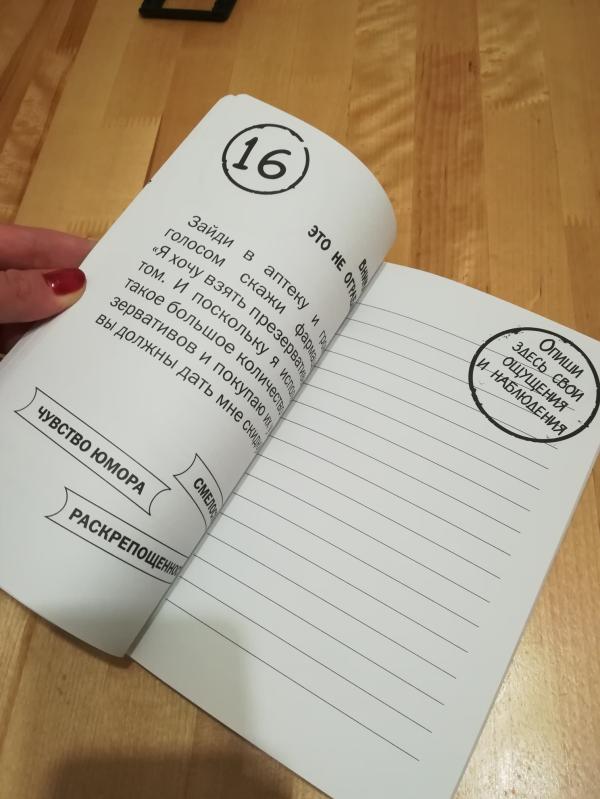 16
ВНИ
ЭТО НЕ ОГРА
Зайди в аптеку и гро
голосом скажи фарма
«Я хочу взять презерватив
том. И поскольку я испо
такое большое количеств
зервативов и покупаю их
вы должны дать мне скид
ЧУВСТВО ЮМОРА
СМЕЛОС
РАСКРЕПОЩЕННОС
Опиши
здесь свои
ощущения
и наблюдения